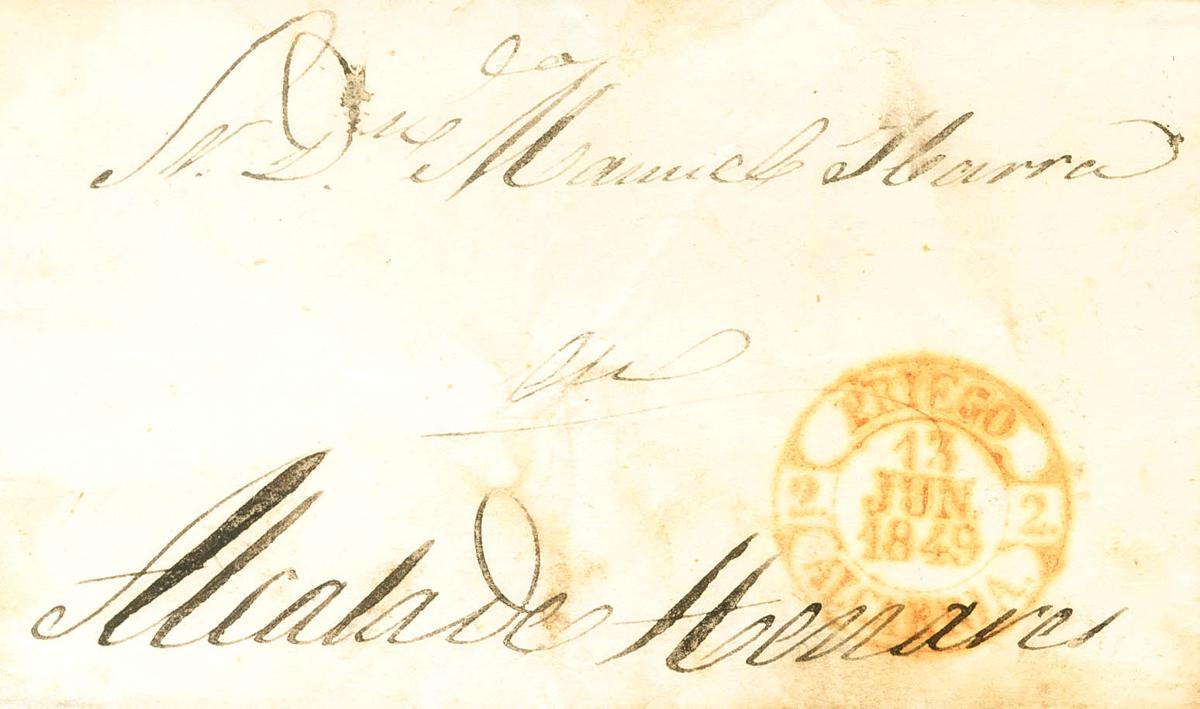 Sr. D. Dn Manuel Ibarra
en
Alcala de Henares
PRIEGO
13
JUN
1849
2. 2.